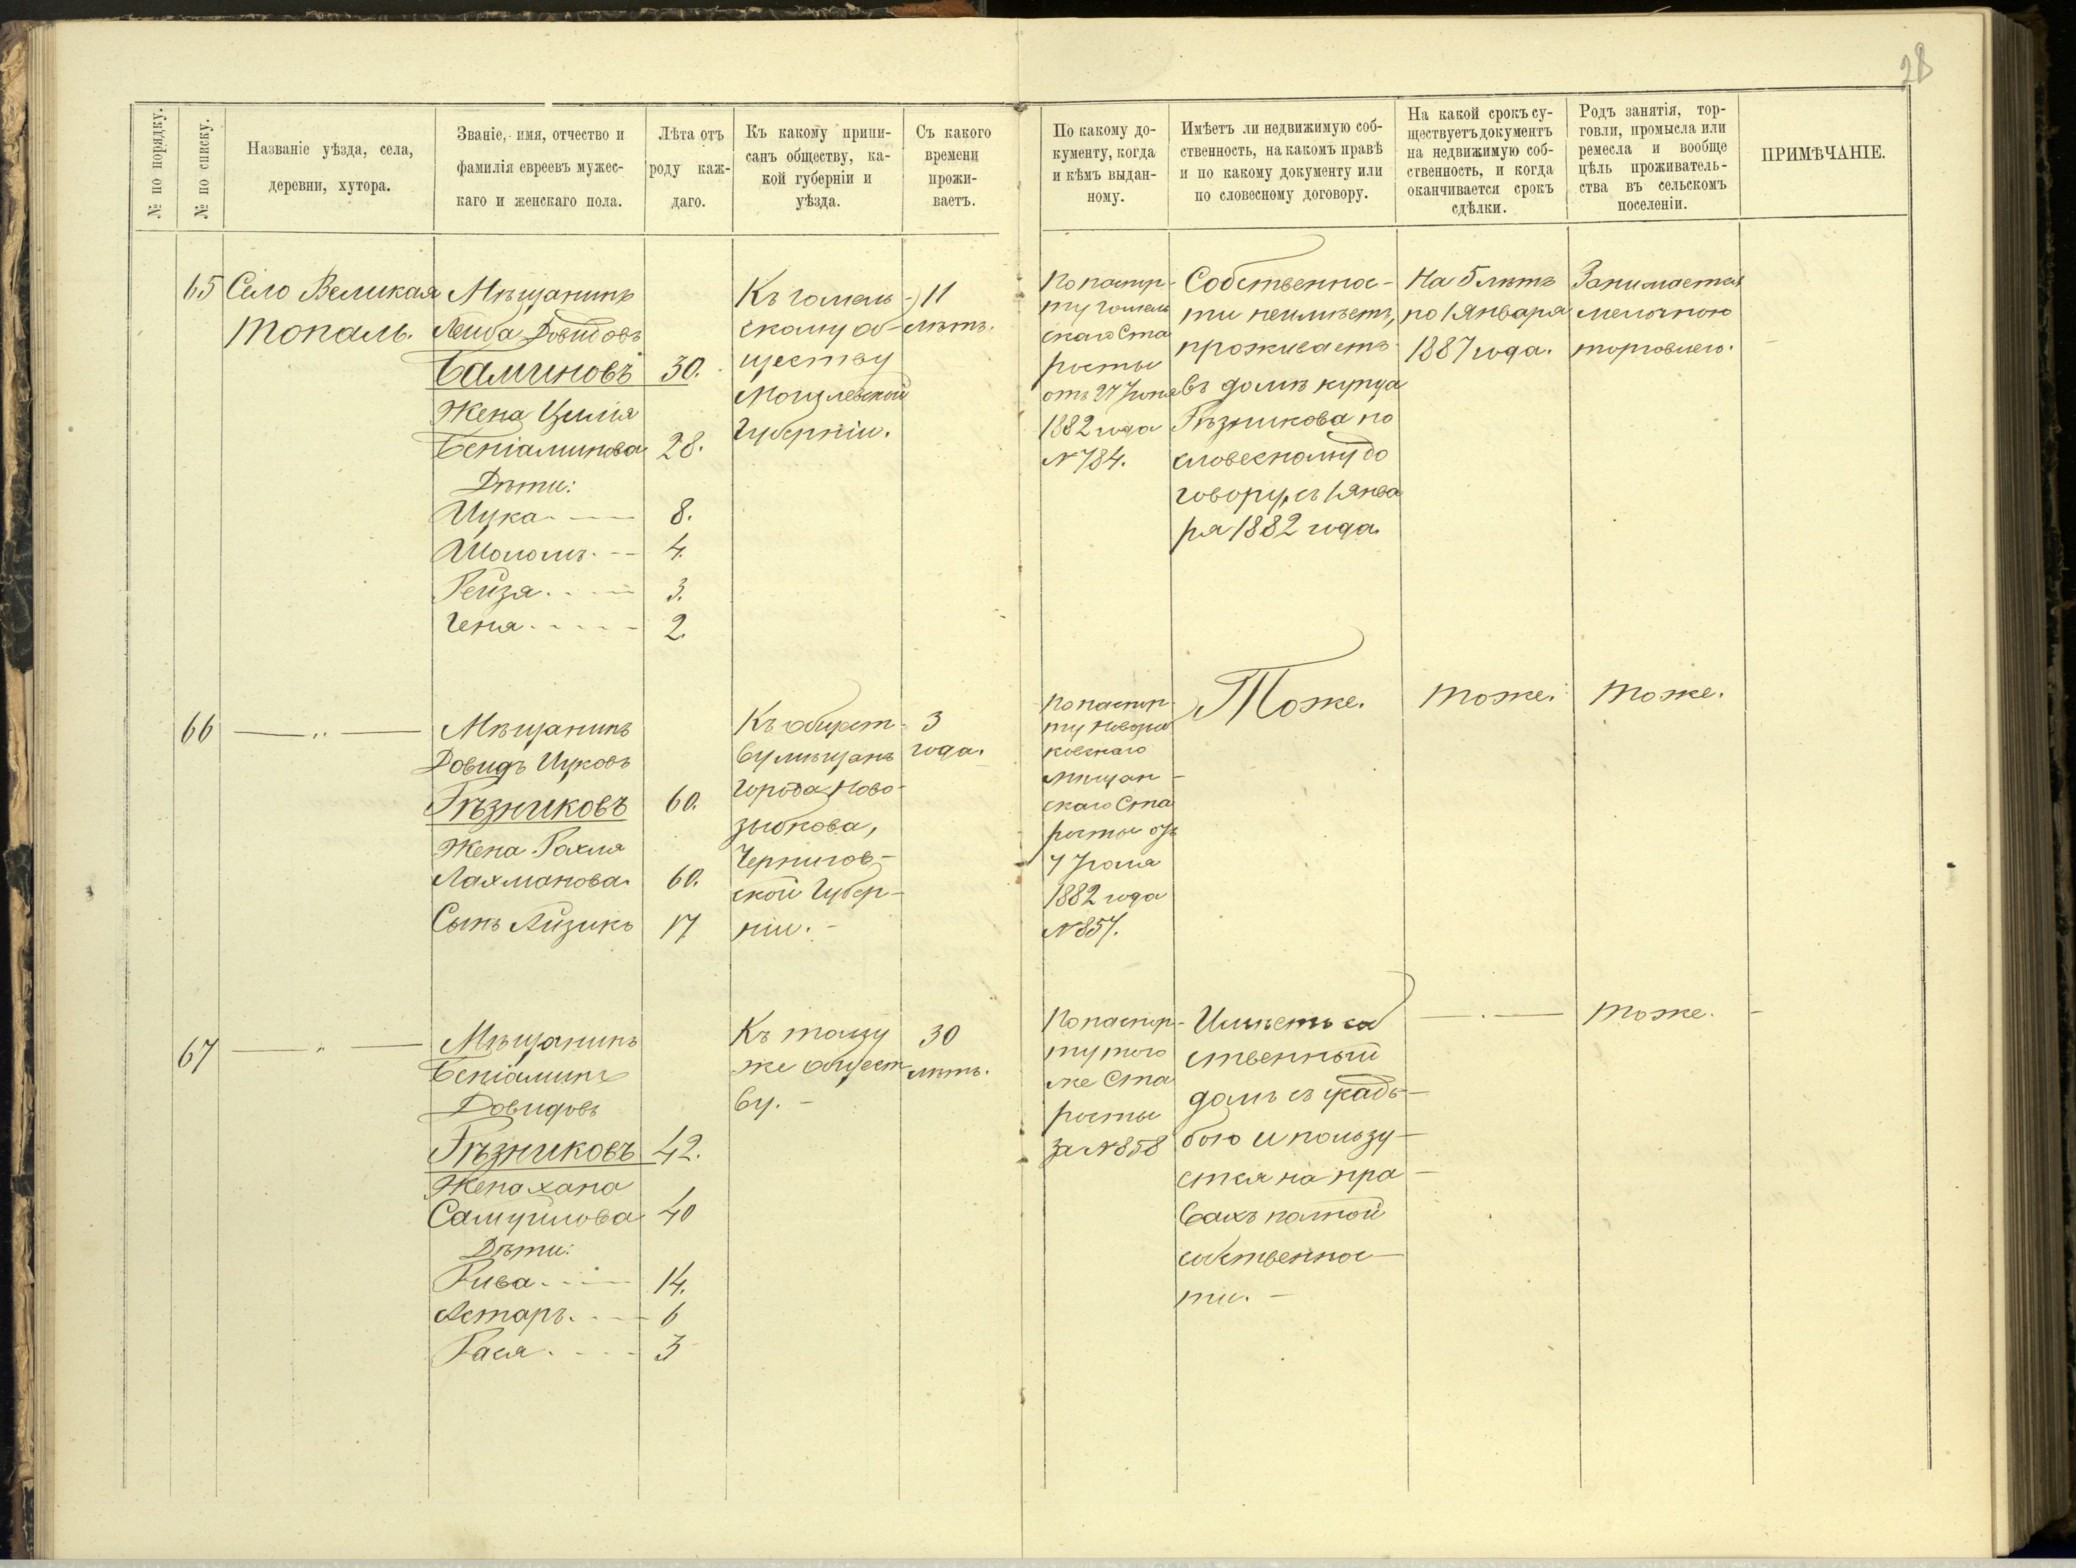 28
№ по порядку.
№ по списку.
Названіе уѣзда, села,
деревни, хутора.
Званіе, имя, отчество и
фамилія евреевъ мужес-
каго и женскаго пола.
Лѣта отъ
роду каж-
даго.
Къ какому припи-
санъ обществу, ка-
кой губерніи и
уѣзда.
Съ какого
времени
прожи-
ваетъ.
По какому до-
кументу, когда
и кѣмъ выдан-
ному.
Имѣетъ ли недвижимую соб-
ственность, на какомъ правѣ
и по какому документу или
по словесному договору.
На какой срокъ су-
ществуетъ документъ
на недвижимую соб-
ственность, и когда
оканчивается срокъ
сдѣлки.
Родъ занятія, тор-
говли, промысла или
ремесла и вообще
цѣль проживатель-
ства въ сельскомъ
поселеніи.
ПРИМѢЧАНІЕ.
65
Село Великая
Тополь.
Мѣщанинъ
Лейба Довидовъ
Баминовъ 30.
Жена Цилія
Беніаминова 28.
Дѣти:
Цука 8.
Шоломъ 4.
Рейза 3.
Геня 2.
Къ гомель-
скому об-
ществу
Могилевской
Губерніи.
11
лѣтъ.
По паспор-
ту гомель
скаго Ста
росты
отъ 27 Іюня
1882 года
№ 784.
Собственнос-
ти неимѣетъ,
проживаетъ
въ домѣ купца
Рѣзникова по
словесному до
говору, съ 1 Янва
ря 1882 года.
На 5 лѣтъ
по 1 Января
1887 года.
Занимается
мелочною
торговлею.
66
— „ —
Мѣщанинъ
Довидъ Цуковъ
Рѣзниковъ 60.
Жена Рахля
Лахманова 60.
Сынъ Айзикъ 17
Къ общест-
ву мѣщанъ
города Ново-
зыбкова,
Чернигов-
ской Губер-
ніи. -
3
года.
По паспор-
ту Новозыб
ковскаго
мѣщан-
скаго Ста
росты отъ
7 Іюля
1882 года
№ 857.
Тоже.
Тоже.
Тоже.
67
— „ —
Мѣщанинъ
Беніаминъ
Довидовъ
Рѣзниковъ 42.
Жена Хана
Самуйлова 40
Дѣти:
Рива 14.
Астаръ 6
Рася 3
Къ тому
же общест
ву. -
30
лѣтъ.
По паспор-
ту того
же Ста
росты
за № 858
Имѣетъ соб
ственный
домъ съ усадь-
бою и пользу-
ется на пра-
вахъ полной
собственнос-
ти. -
— . —
Тоже. -